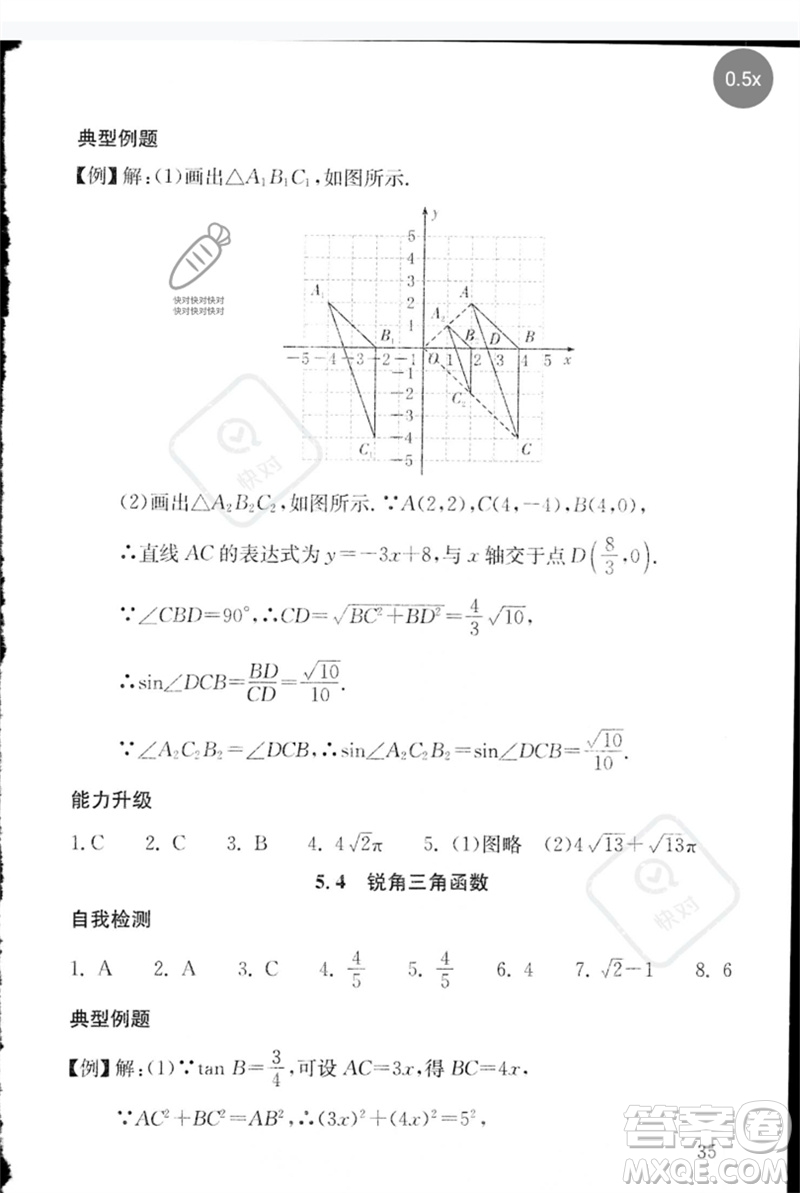 0.5x
典型例题
【例】解:(1)画出△A₁B₁C₁,如图所示.
快对快对快对
快对快对快对
y
5
4
3
A₁ 2 A
A₂ 1
B₁ B₂ D B
-5 -4 -3 -2 -1 O 1 2 3 4 5 x
-1
-2 C₂
-3
C₁ -4 C
-5
快对
(2)画出△A₂B₂C₂,如图所示.∵A(2,2),C(4,-4),B(4,0),
∴直线 AC 的表达式为 y=-3x+8,与 x 轴交于点 D(8/3,0).
∵∠CBD=90°,∴CD=√(BC²+BD²)=4/3√10,
∴sin∠DCB=BD/CD=√10/10.
∵∠A₂C₂B₂=∠DCB,∴sin∠A₂C₂B₂=sin∠DCB=√10/10.
能力升级
1. C 2. C 3. B 4. 4√2π 5. (1)图略 (2)4√13+√13π
5.4 锐角三角函数
快对
自我检测
1. A 2. A 3. C 4. 4/5 5. 4/5 6. 4 7. √2-1 8. 6
典型例题
【例】解:(1)∵tan B=3/4,可设 AC=3x,得 BC=4x,
∵AC²+BC²=AB²,∴(3x)²+(4x)²=5²,
答案圈
35
MXQE.COM